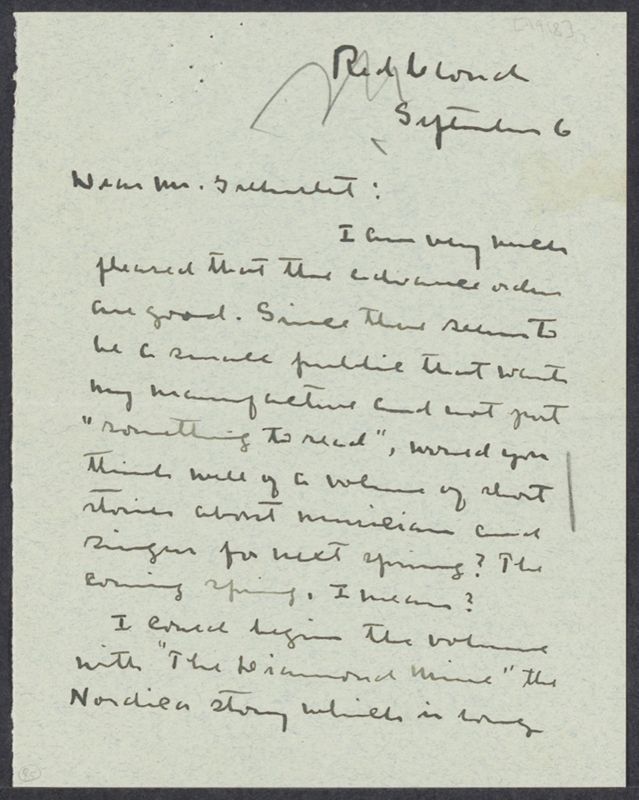 [1918]
Red Cloud
September 6
Dear Mr. Greenslet:
I am very much
pleased that the advance orders
are good. Since there seems to
be a small public that wants
my manufacture and not just
"something to read", would you
think well of a volume of short
stories about musicians and
singers for next spring? The
coming spring, I mean?
I could begin the volume
with "The Diamond Mine" the
Nordica story which is long